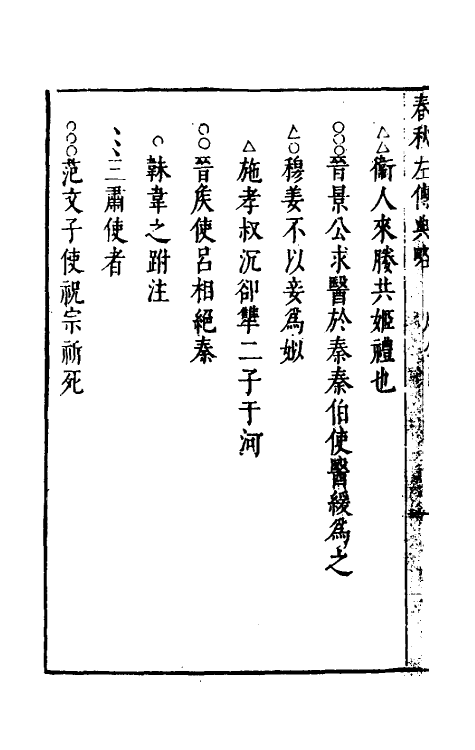 春秋左傳典略
△△衞人來媵共姬禮也
○○○晉景公求醫於秦秦伯使醫緩爲之
△○穆姜不以妾爲姒
△施孝叔沉卻犨二子于河
○○晉矦使呂相絕秦
○韎韋之跗注
、、三肅使者
○○○范文子使祝宗祈死